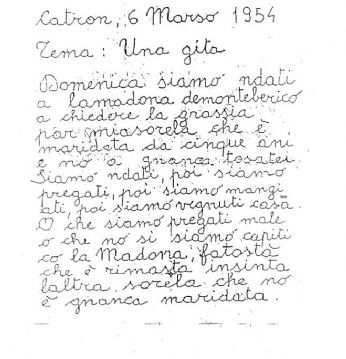 Catron, 6 Marso 1954
Tema: Una gita
Domenica siamo ndati
a lamadona demonteberico
a chiedere la grassia
par miasorela che è
maridata da cinque ani
e nò à gnanca tosatei.
Siamo ndati, poi siamo
pregati, poi siamo mangi
ati, poi siamo vegnuti casa.
O che siamo pregati male
o che no si siamo capiti
co la Madona, fatostà
che è rimasta insinta
laltra sorela che no
è gnanca maridata.